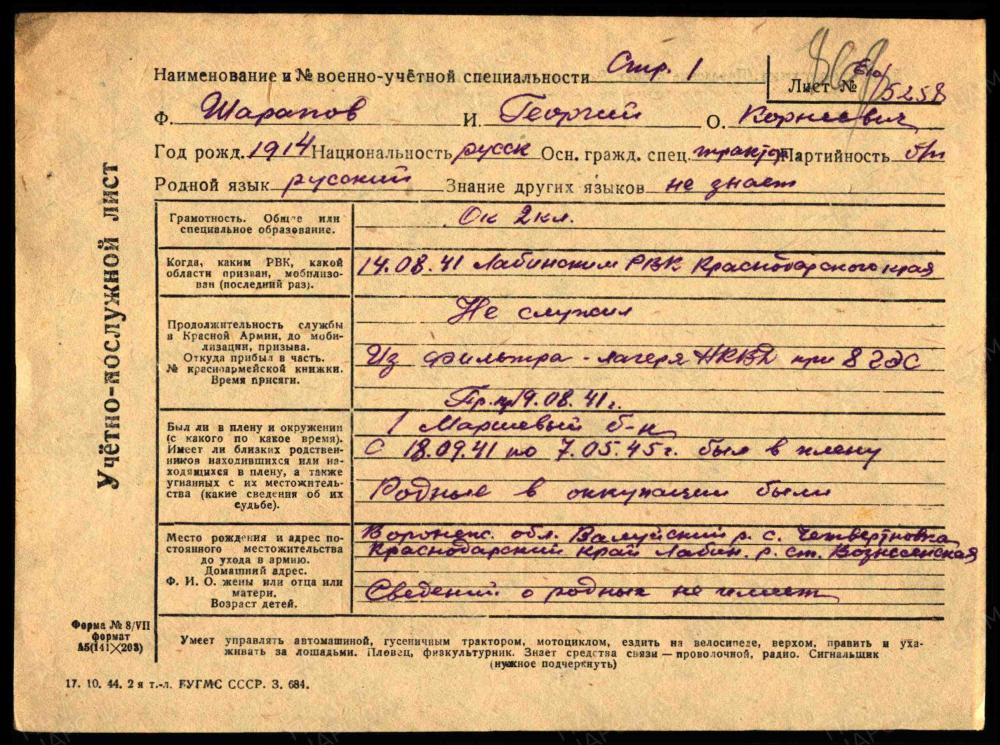 Наименование и № военно-учётной специальности Стр. 1
Лист № 5258
Ф. Шарапов И. Георгий О. Корнеевич
Год рожд. 1914 Национальность русск Осн. гражд. спец. тракт Партийность б/п
Родной язык русский Знание других языков не знает
Учётно-послужной лист
Грамотность. Общее или
специальное образование.
Ок 2 кл.
Когда, каким РВК, какой
области призван, мобилизо-
ван (последний раз).
14.08.41 Лабинским РВК Краснодарского края
Продолжительность службы
в Красной Армии, до моби-
лизации, призыва.
Откуда прибыл в часть.
№ красноармейской книжки.
Время присяги.
Не служил
Из фильтра-лагеря НКВД при 8 ГЭС
Пр. пр 19.08.41 г.
Был ли в плену и окружении
(с какого по какое время).
Имеет ли близких родствен-
ников находившихся или на-
ходящихся в плену, а также
угнанных с их местожитель-
ства (какие сведения об их
судьбе).
1 Маршевый б-н
С 18.09.41 по 7.05.45 г. был в плену
Родные в оккупации были
Место рождения и адрес по-
стоянного местожительства
до ухода в армию.
Домашний адрес.
Ф. И. О. жены или отца или
матери.
Возраст детей.
Воронеж. обл. Валуйский р. с. Четвертновка
Краснодарский край Лабин. р. ст. Вознесенская
Сведений о родных не имеет
Форма № 8/VII
формат
А5(141×203)
Умеет управлять автомашиной, гусеничным трактором, мотоциклом, ездить на велосипеде, верхом, править и уха-
живать за лошадьми. Пловец, физкультурник. Знает средства связи — проволочной, радио. Сигнальщик
(нужное подчеркнуть)
17. 10. 44. 2 я т.-л. ВУГМС СССР. З. 684.